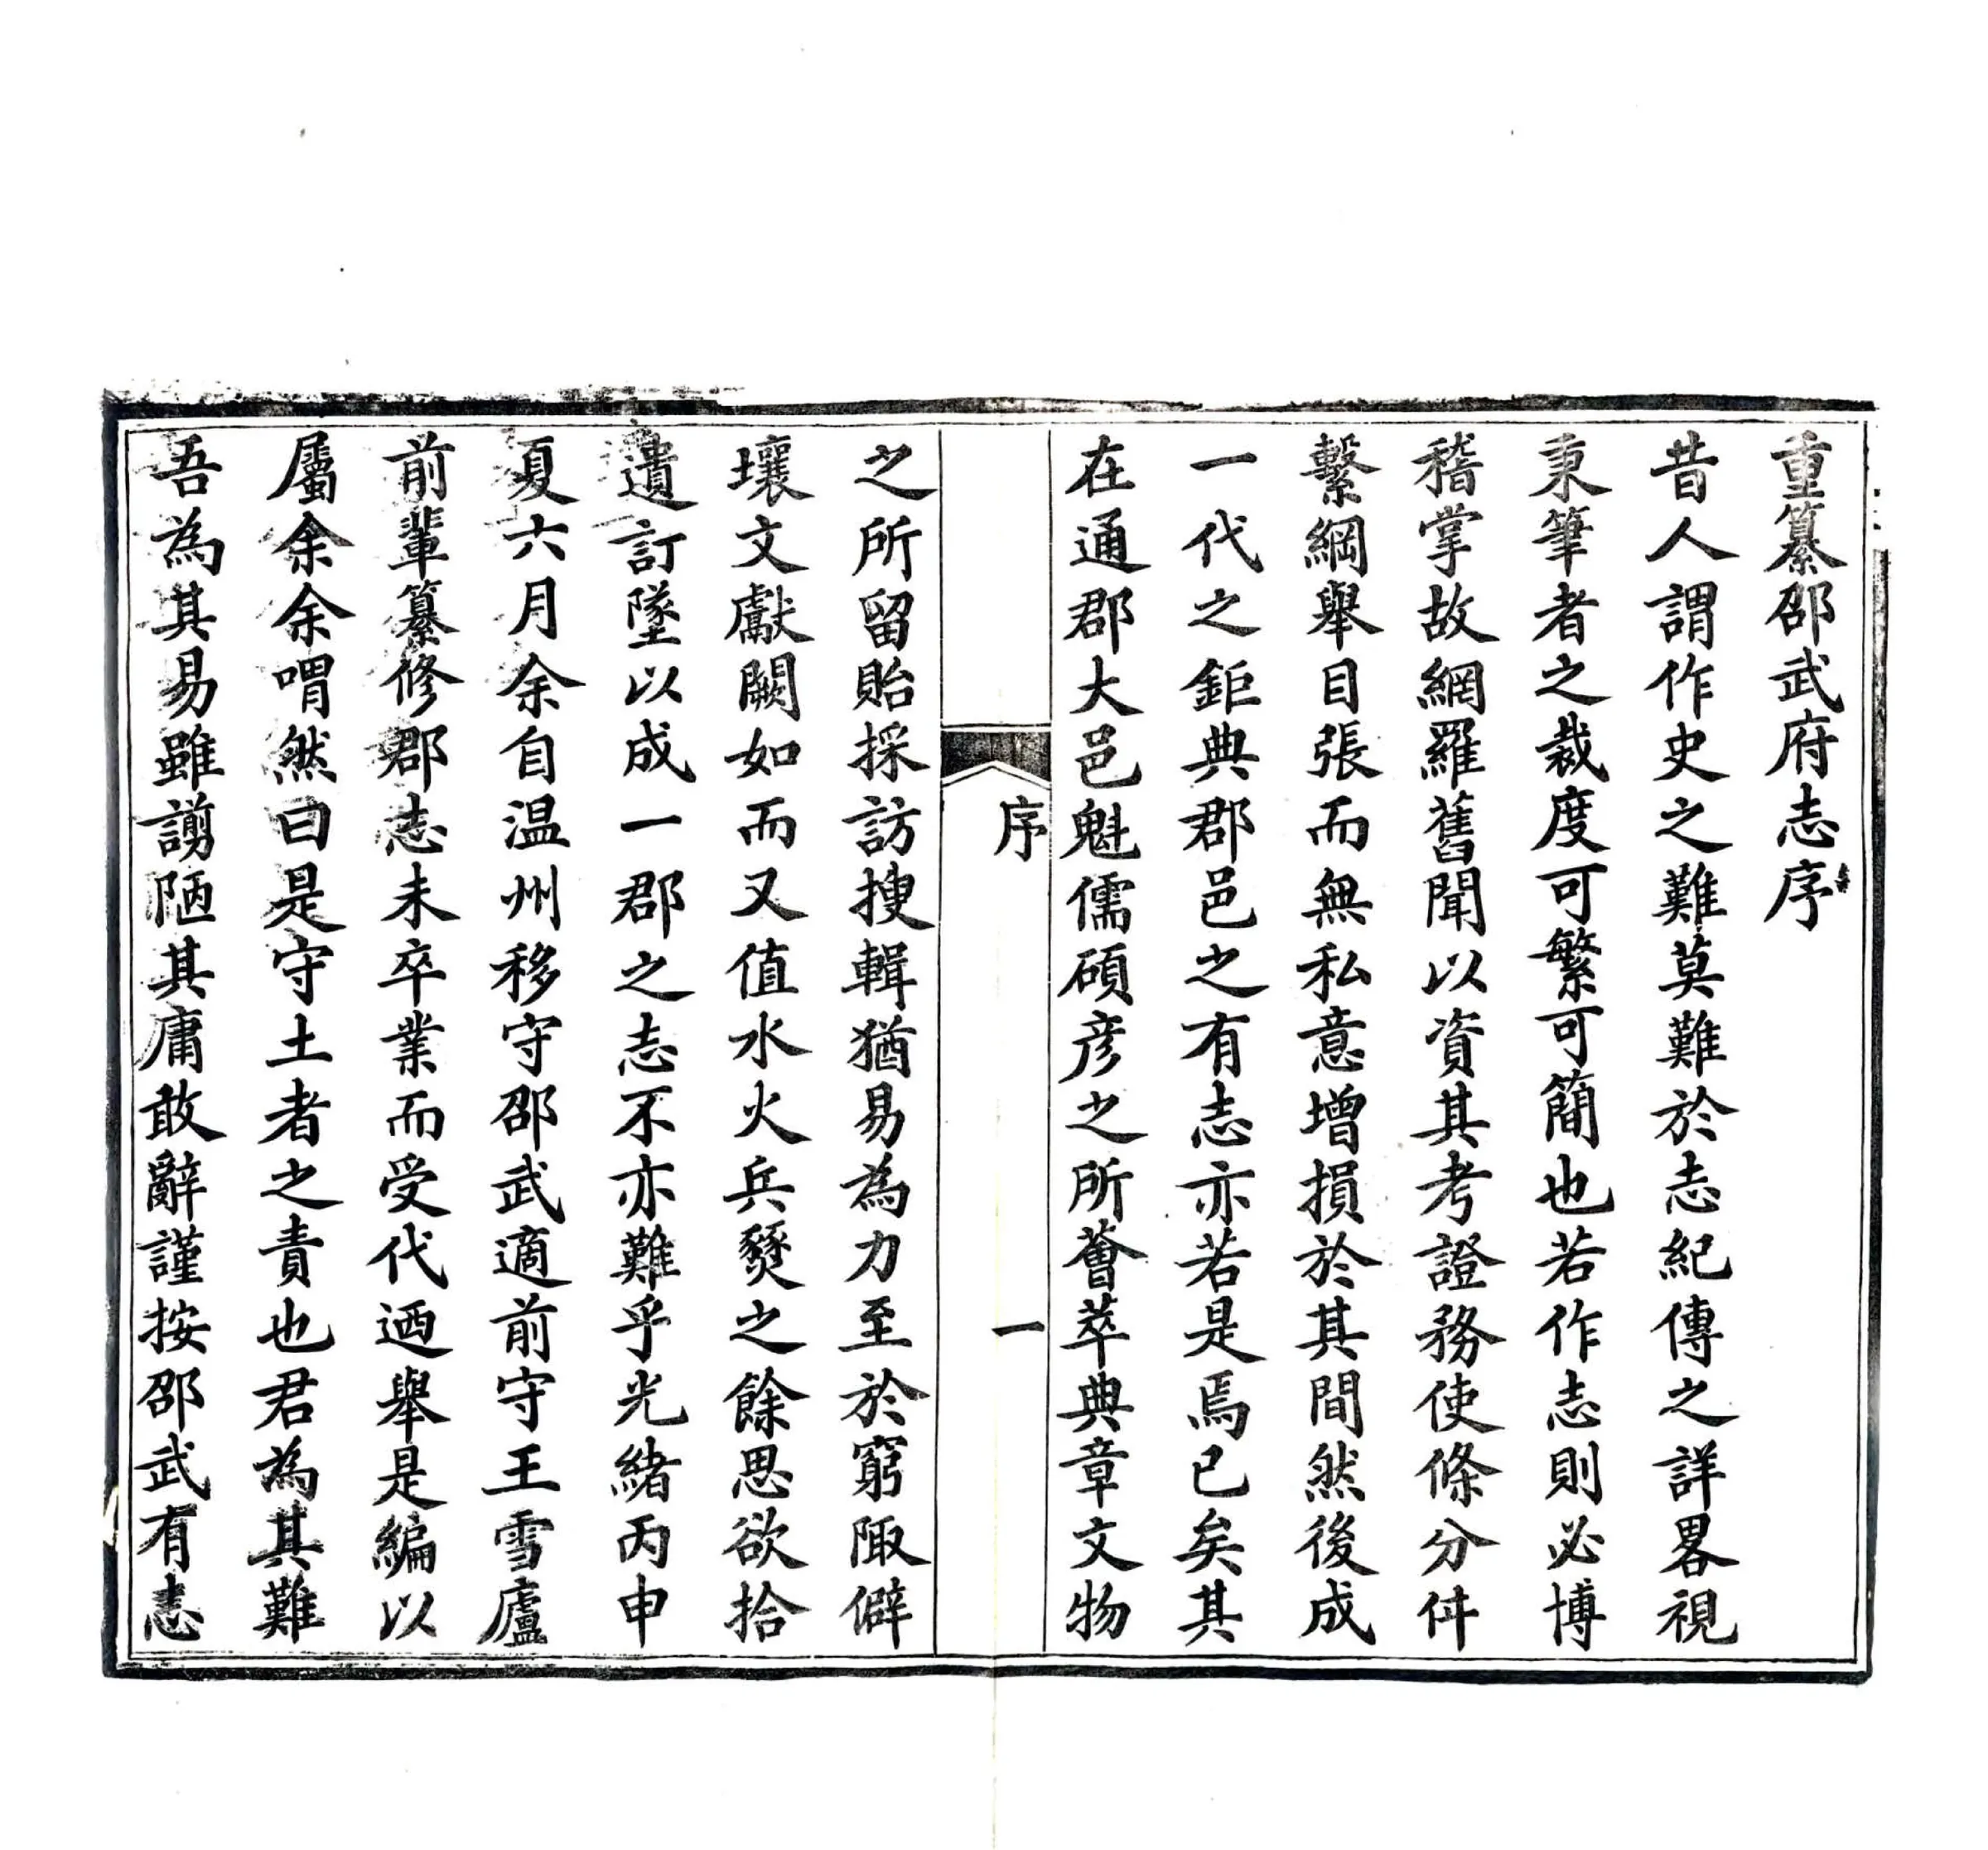 重纂邵武府志序
昔人謂作史之難莫難於志紀傳之詳畧視
秉筆者之裁度可繁可簡也若作志則必博
稽掌故網羅舊聞以資其考證務使條分件
繫綱舉目張而無私意增損於其間然後成
一代之鉅典郡邑之有志亦若是焉已矣其
在通郡大邑魁儒碩彥之所薈萃典章文物
序
一
之所留貽採訪搜輯猶易為力至於窮陬僻
壤文獻闕如而又值水火兵燹之餘思欲拾
遺訂墜以成一郡之志不亦難乎光緒丙申
夏六月余自温州移守邵武適前守王雪廬
前輩纂修郡志未卒業而受代迺舉是編以
屬余余喟然曰是守土者之責也君為其難
吾為其易雖謭陋其庸敢辭謹按邵武有志